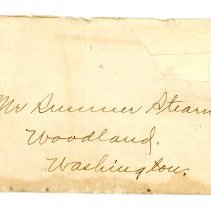 Mr Sumner Stearn
Woodland.
Washington.